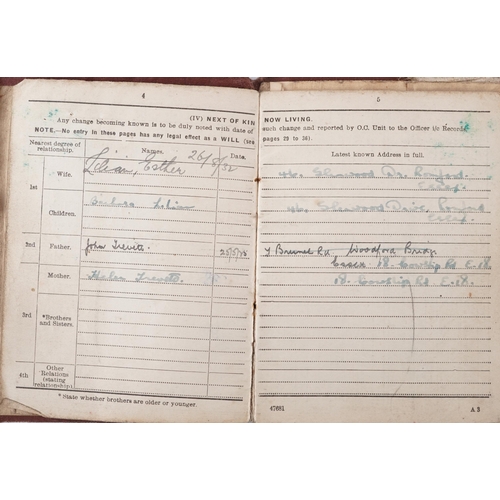 4
(IV) NEXT OF KIN
Any change becoming known is to be duly noted with date of
NOTE.—No entry in these pages has any legal effect as a WILL (see
Nearest degree of relationship.
Names.
Date.
1st
Wife.
Lilian, Esther
Children.
Lilian
2nd
Father.
John Trevett.
Mother.
Helen Trevett.
3rd
*Brothers and Sisters.
4th
Other Relations (stating relationship).
* State whether brothers are older or younger.
5
NOW LIVING.
such change and reported by O.C. Unit to the Officer i/c Records
pages 29 to 36).
Latest known Address in full.
46, Dr. Romford.
Essex.
46, Drive, Romford
Essex.
Rd Woodford Bridge.
Essex 18. Cowslip Rd E.18.
18. Cowslip Rd E.18.
47681
A 3